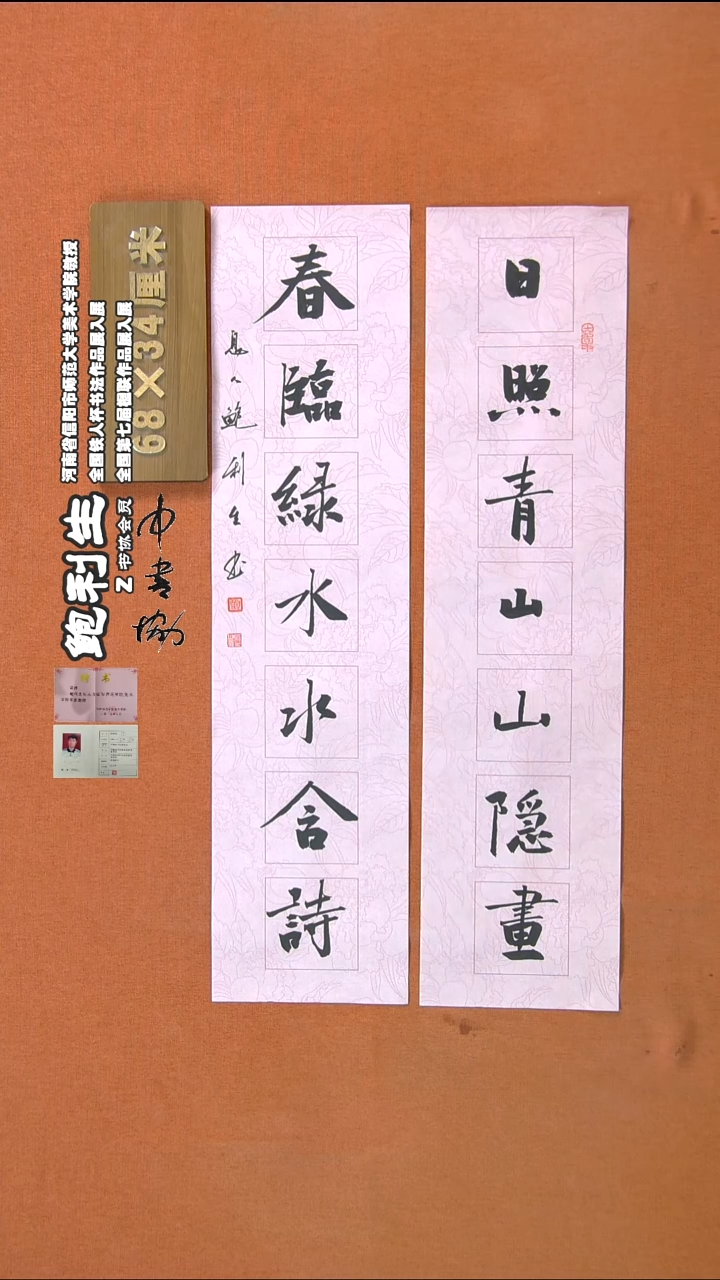 日照青山山隐畫
春臨緑水水含詩
鮑利生书
68×34厘米
河南省信阳市师范大学美术学院教授
全国铁人杯书法作品展入展
全国第七届楹联作品展入展
鲍利生
Z书协会员
中书协